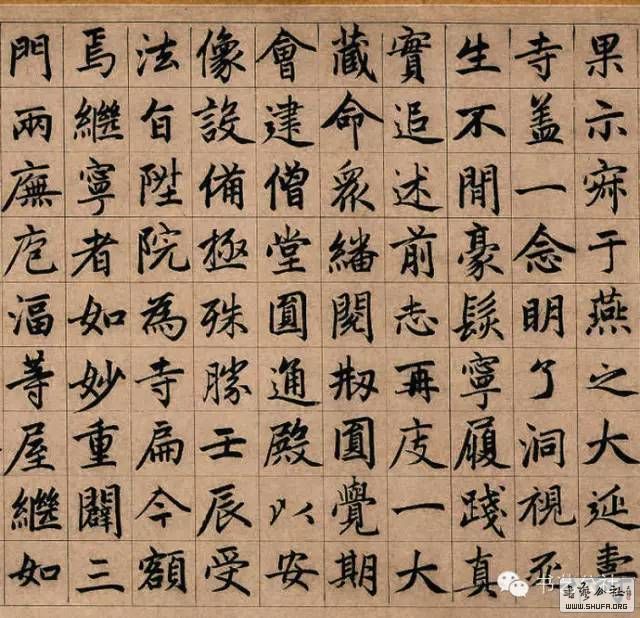 果示寂于燕之大延壽
寺盖一念明了洞視死
生不間豪髮寧履踐真
實追述前志再庋一大
藏命眾繙閱刱圓覺期
會建僧堂圓通殿以安
像設備極殊勝壬辰受
法旨陞院為寺扁今額
焉繼寧者如妙重闢三
門兩廡庖湢等屋繼如
书艺公社
書藝公社
WWW.SHUFA.ORG